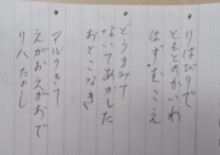 • りはびりで
ともとのかいわ
はずむこえ
• どうまみて
ないてあかした
おとこなき
• アルクきて
えがおえがおで
リハたのし